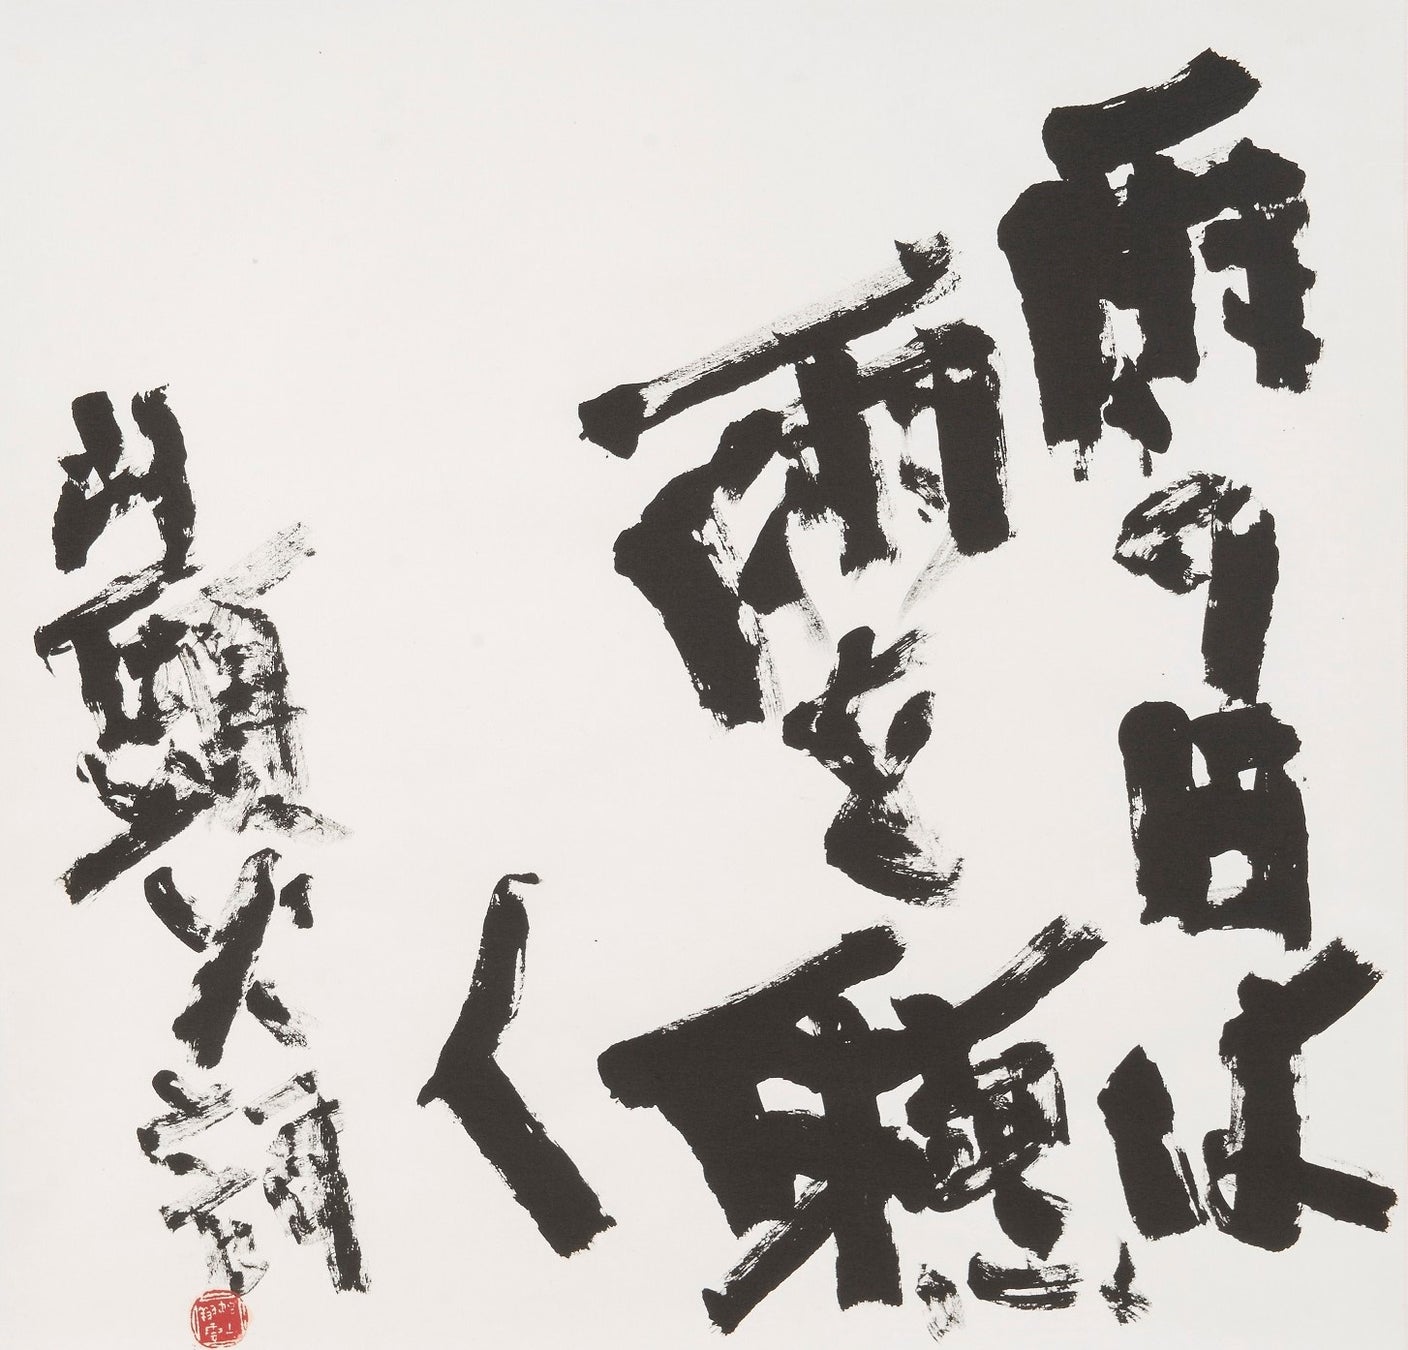 雨の日は
雨を聴
く
山頭火詞